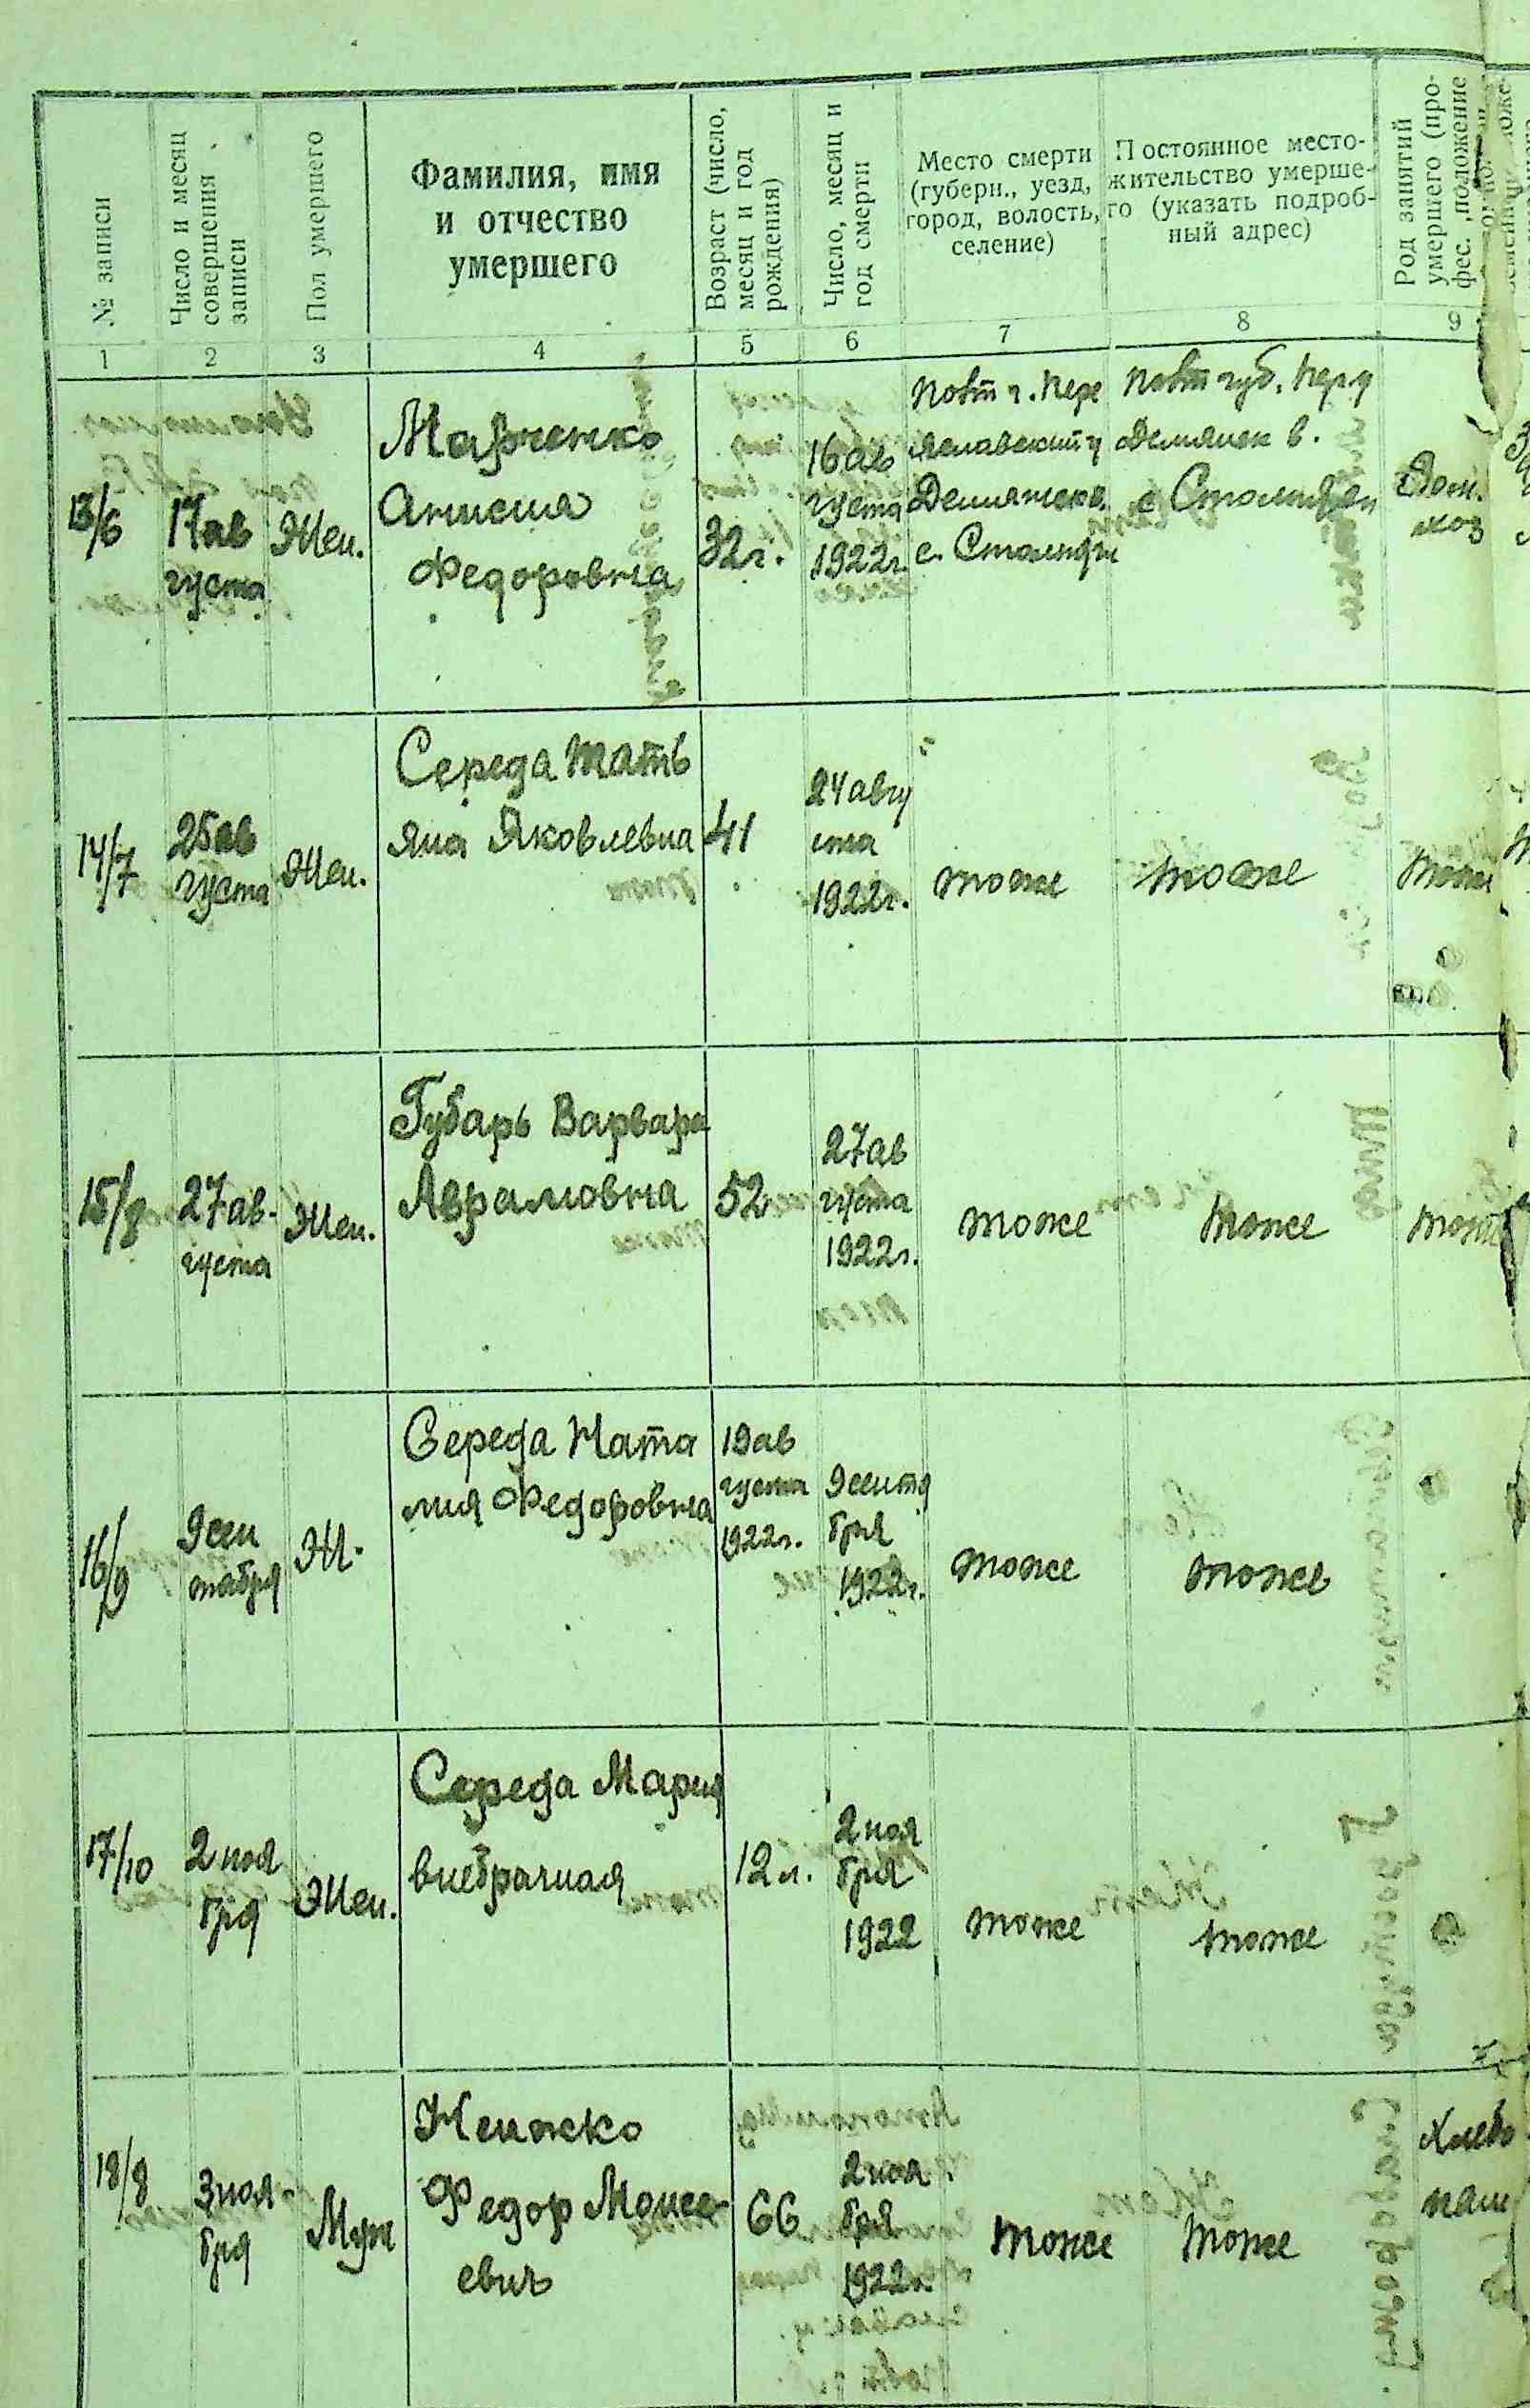 № записи
Число и месяц
совершения
записи
Пол умершего
Фамилия, имя
и отчество
умершего
Возраст (число,
месяц и год
рождения)
Число, месяц и
год смерти
Место смерти
(губерн., уезд,
город, волость,
селение)
Постоянное место-
жительство умерше-
го (указать подроб-
ный адрес)
Род занятий
умершего (про-
фес. положение
1
2
3
4
5
6
7
8
9
13/6
17 ав
густа
Жен.
Марченко
Анисия
Федоровна
32 г.
16 ав
густа
1922 г.
Полт г. Пере
яславский у
Демянск в.
с. Столпяги
Полт губ. Пер у
Демянск в.
с Столпяги
Дом.
хоз
14/7
25 ав
густа
Жен.
Середа Тать
яна Яковлевна
41
24 авгу
ста
1922 г.
тоже
тоже
тоже
15/8
27 ав-
густа
Жен.
Губарь Варвара
Аврамовна
52
27 ав
густа
1922 г.
тоже
тоже
тоже
16/9
9 сен
тября
Ж.
Середа Ната
лия Федоровна
19 ав
густа
1922 г.
9 сентя
бря
1922 г.
тоже
тоже
17/10
2 ноя
бря
Жен.
Середа Мария
внебрачная
12 л.
2 ноя
бря
1922
тоже
тоже
18/8
3 ноя-
бря
Муж
Федор Моисе
евич
66
2 ноя
бря
1922 г.
тоже
тоже
Хлебо
паш